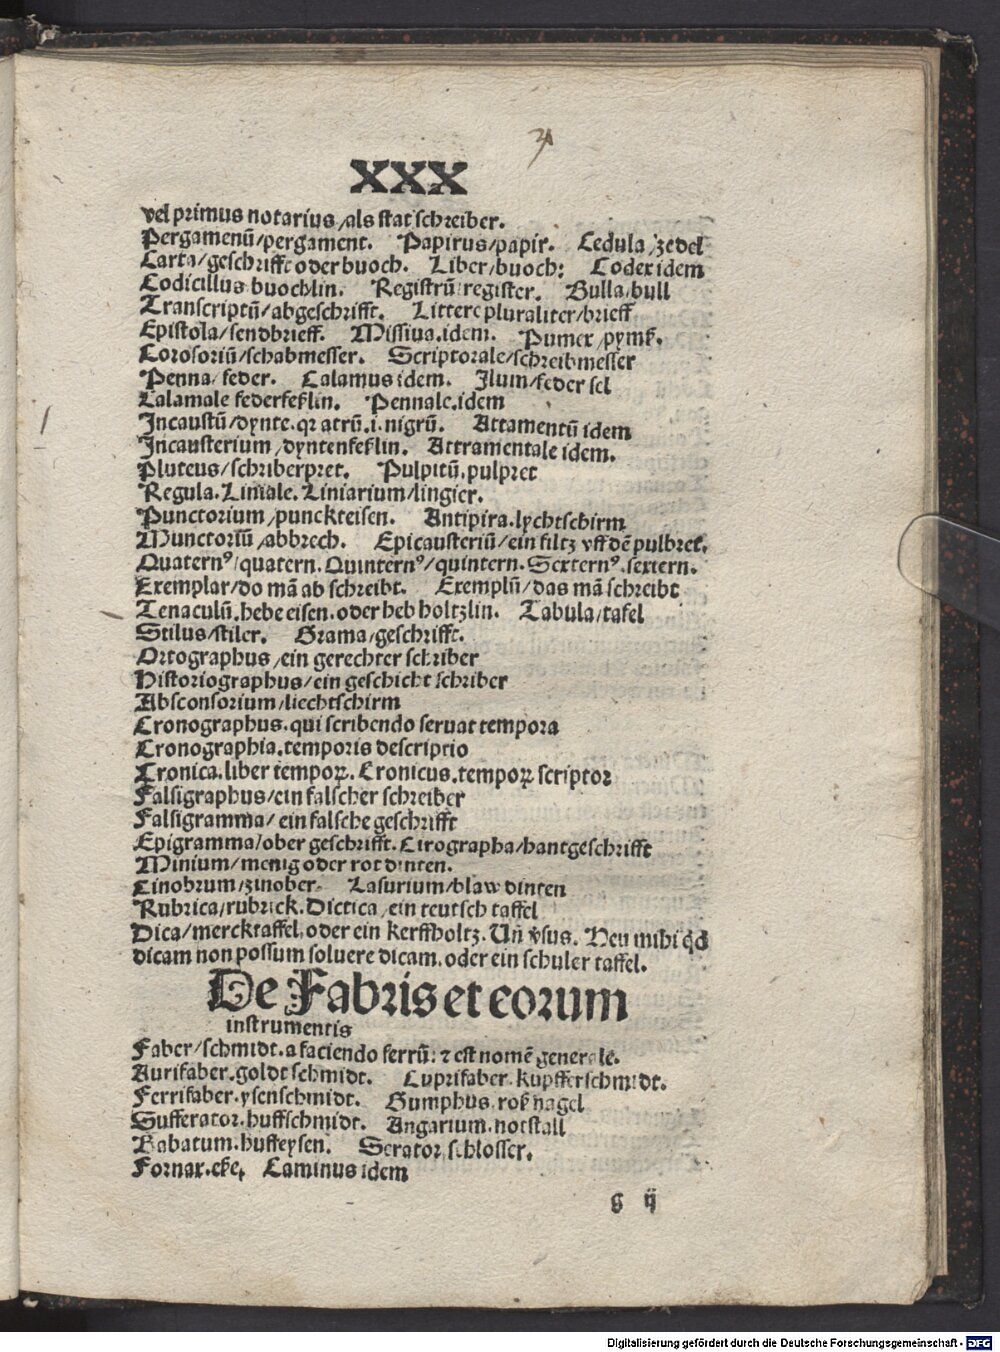 XXX
vel primus notarius/als stat schreiber.
Pergamenū/pergament. Papirus/papir. Cedula/zedel
Carta/geschrifft oder buoch. Liber/buoch: Codex idem
Codicillus buochlin. Registrū register. Bulla/bull
Transcriptū/abgeschrifft. Littere pluraliter/brieff
Epistola/sendbrieff. Missiua.idem. Pumex/pymß.
Corosoriū/schabmesser. Scriptorale/schreibmesser
Penna/feder. Calamus idem. Ilum/feder sel
Calamale federkeßlin. Pennale.idem
Incaustū/dynte.qꝛ atrū.i.nigrū. Attamentū idem
Incausterium/dyntenkeßlin. Attramentale idem.
Pluteus/schriberpret. Pulpitū.pulpret
Regula.Liniale.Liniarium/lingier.
Punctorium/punckteisen. Antipira.lychtschirm
Munctoriū/abbrech. Epicausteriū/ein filtz vff dē pulbret.
Quaternꝰ/quatern. Quinternꝰ/quintern. Sexternꝰ.sextern.
Exemplar/do mā ab schreibt. Exemplū/das mā schreibt
Tenaculū.hebe eisen.oder heb holtzlin. Tabula/tafel
Stilus/stiler. Grama/geschrifft.
Ortographus/ein gerechter schriber
Historiographus/ein geschicht schriber
Absconsorium/liechtschirm
Cronographus.qui scribendo seruat tempora
Cronographia.temporis descriptio
Cronica.liber tempoꝝ. Cronicus.tempoꝝ scriptor
Falsigraphus/ein falscher schreiber
Falsigramma/ein falsche geschrifft
Epigramma/ober geschrifft. Cirographa/hantgeschrifft
Minium/menig oder rot dinten.
Cinobrum/zinober. Lasurium/blaw dinten
Rubrica/rubrick. Dictica/ein teutsch taffel
Dica/mercktaffel oder ein kerffholtz. Uñ v̉sus. Heu mihi qđ
dicam non possum soluere dicam.oder ein schuler taffel.
De Fabris et eorum
instrumentis
Faber/schmidt.a faciendo ferrū: ⁊ est nomē generale.
Aurifaber.goldt schmidt. Cuprifaber.kupfferschmidt.
Ferrifaber.ysenschmidt. Gumphus.roß nagel
Sufferator.huffschmidt. Angarium.notstall
Babatum.huffeysen. Serator schlosser.
Fornax.eße, Caminus idem
g ij
Digitalisierung gefördert durch die Deutsche Forschungsgemeinschaft - DFG